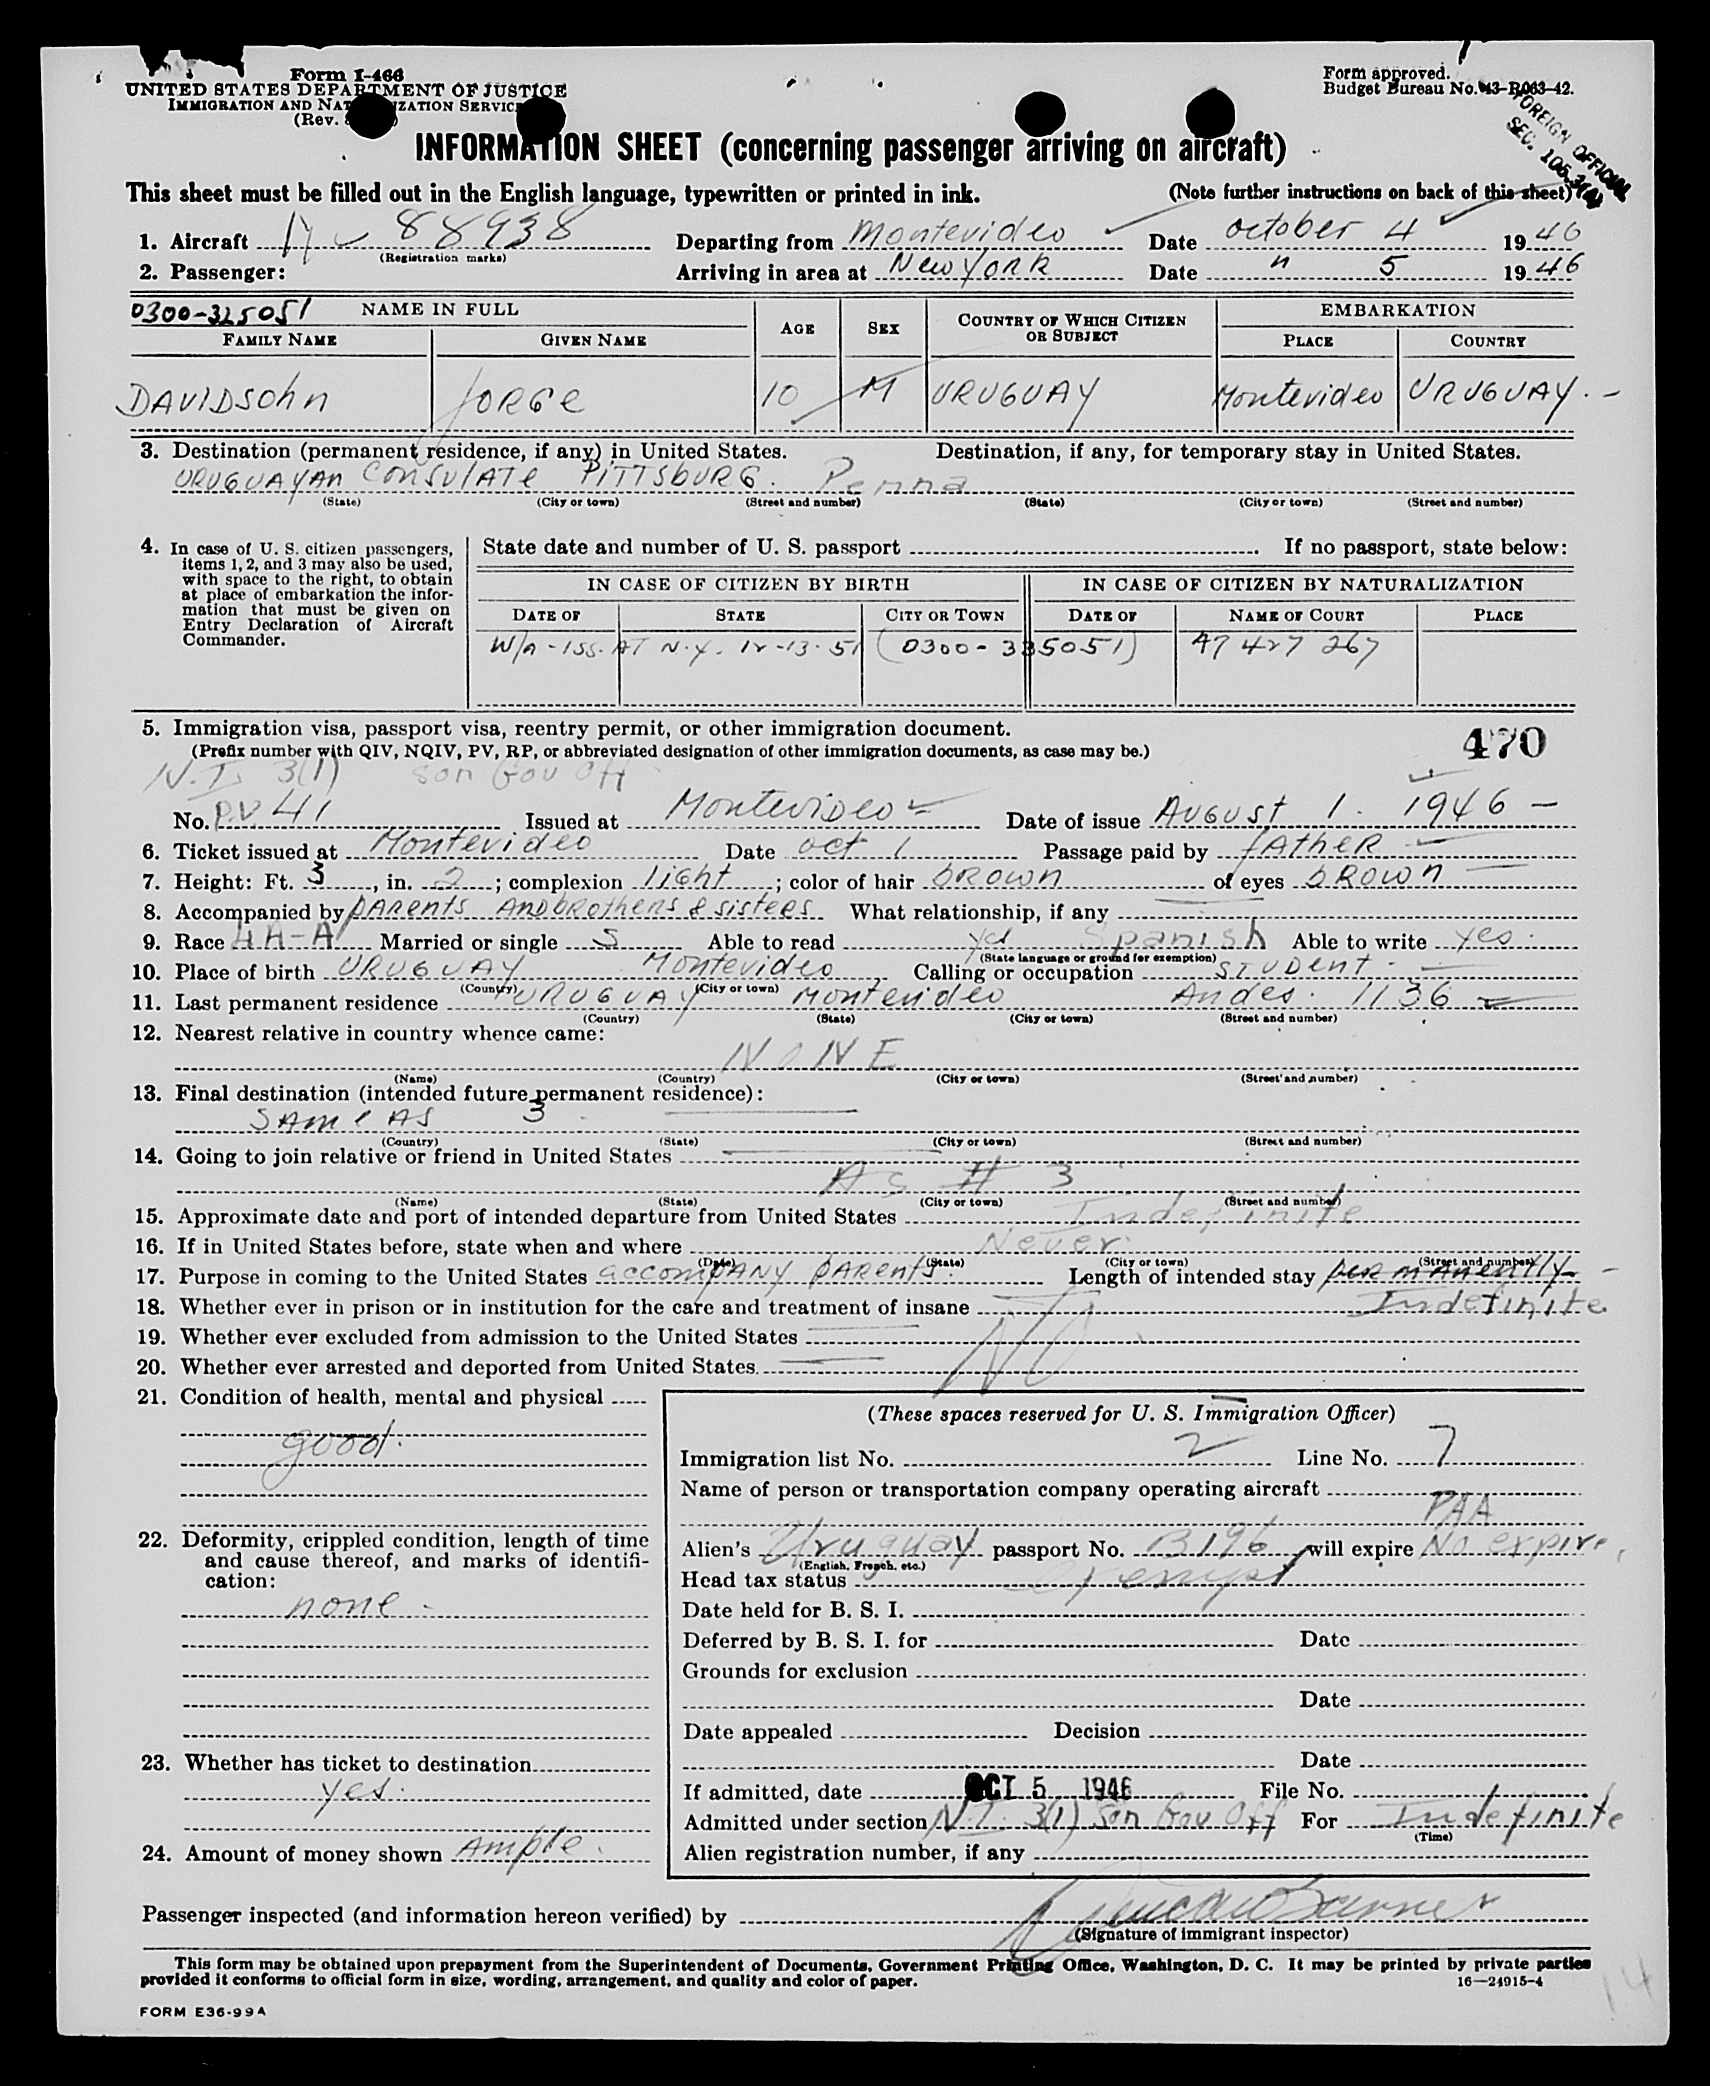 Form I-466
UNITED STATES DEPARTMENT OF JUSTICE
IMMIGRATION AND NATURALIZATION SERVICE
(Rev.
Form approved.
Budget Bureau No. 43-R063-42.
FOREIGN OFFICIAL
SEC.
INFORMATION SHEET (concerning passenger arriving on aircraft)
This sheet must be filled out in the English language, typewritten or printed in ink. (Note further instructions on back of this sheet)
1. Aircraft 88938 Departing from Montevideo Date october 4 1946
(Registration marks)
2. Passenger: Arriving in area at New York Date " 5 1946
0300-325051 NAME IN FULL AGE SEX COUNTRY OF WHICH CITIZEN OR SUBJECT EMBARKATION
FAMILY NAME GIVEN NAME PLACE COUNTRY
DAVIDSOhn JORGE 10 M URUGUAY Montevideo URUGUAY.-
3. Destination (permanent residence, if any) in United States. Destination, if any, for temporary stay in United States.
URUGUAYAN CONSULATE PITTSBURG. Penna
(State) (City or town) (Street and number) (State) (City or town) (Street and number)
4. In case of U. S. citizen passengers, items 1, 2, and 3 may also be used, with space to the right, to obtain at place of embarkation the information that must be given on Entry Declaration of Aircraft Commander.
State date and number of U. S. passport . If no passport, state below:
IN CASE OF CITIZEN BY BIRTH IN CASE OF CITIZEN BY NATURALIZATION
DATE OF STATE CITY OR TOWN DATE OF NAME OF COURT PLACE
W/a - iss. AT N.Y. 12-13-51 (0300-335051) A7 427 267
5. Immigration visa, passport visa, reentry permit, or other immigration document.
(Prefix number with QIV, NQIV, PV, RP, or abbreviated designation of other immigration documents, as case may be.)
470
N.I. 3(1) Son Gov Off
No. P.V. 41 Issued at Montevideo Date of issue August 1. 1946 -
6. Ticket issued at Montevideo Date oct 1 Passage paid by fAtheR
7. Height: Ft. 3, in. 2; complexion light; color of hair bROWN of eyes bROWN
8. Accompanied by pARents AND bRothers & sisters What relationship, if any
9. Race Married or single S Able to read yes Spanish Able to write yes.
(State language or ground for exemption)
10. Place of birth URUGUAY Montevideo Calling or occupation STUDENT -
(Country) (City or town)
11. Last permanent residence URUGUAY Montevideo Andes. 1136
(Country) (State) (City or town) (Street and number)
12. Nearest relative in country whence came:
NONE
(Name) (Country) (City or town) (Street and number)
13. Final destination (intended future permanent residence):
SAME AS 3
(Country) (State) (City or town) (Street and number)
14. Going to join relative or friend in United States
As # 3
(Name) (State) (City or town) (Street and number)
15. Approximate date and port of intended departure from United States Indefinite
16. If in United States before, state when and where Never.
(Date) (State) (City or town) (Street and number)
17. Purpose in coming to the United States accompANY pARents. Length of intended stay permanently
18. Whether ever in prison or in institution for the care and treatment of insane Indefinite
19. Whether ever excluded from admission to the United States NO
20. Whether ever arrested and deported from United States.
21. Condition of health, mental and physical
good.
22. Deformity, crippled condition, length of time and cause thereof, and marks of identification:
none -
23. Whether has ticket to destination
yes.
24. Amount of money shown Ample.
(These spaces reserved for U. S. Immigration Officer)
Immigration list No. 2 Line No. 7
Name of person or transportation company operating aircraft
PAA
Alien's Uruguay passport No. B196 will expire No expire
(English, French, etc.)
Head tax status exempt
Date held for B. S. I.
Deferred by B. S. I. for Date
Grounds for exclusion
Date
Date appealed Decision
Date
If admitted, date OCT 5 1946 File No.
Admitted under section N.I. 3(1) Son Gov Off For Indefinite
(Time)
Alien registration number, if any
Passenger inspected (and information hereon verified) by
(Signature of immigrant inspector)
This form may be obtained upon prepayment from the Superintendent of Documents, Government Printing Office, Washington, D. C. It may be printed by private parties
provided it conforms to official form in size, wording, arrangement, and quality and color of paper. 16—24915-4
FORM E36-99A
14